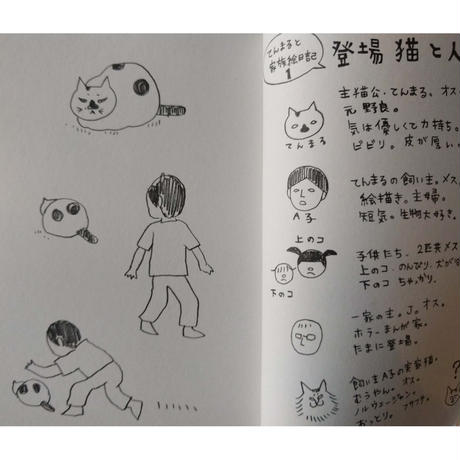 てんまると
家族絵日記
1
登場 猫と人
主猫公・てんまる、オス
元 野良。
気は優しくて力持ち。
ビビリ。皮が厚い。
てんまる
てんまるの飼い主。メス
絵描き。主婦。
短気。生物大好き。
A子
上のコ
下のコ
子供たち、2匹共メス
上のコ、のんびり、犬が
下のコ ちゃっかり。
一家の主。J。オス。
ホラーまんが家。
たまに登場。
飼い主A子の実家猫。
むうやん。オス。
ノルウェージャン。
おっとり。フサフサ。
?